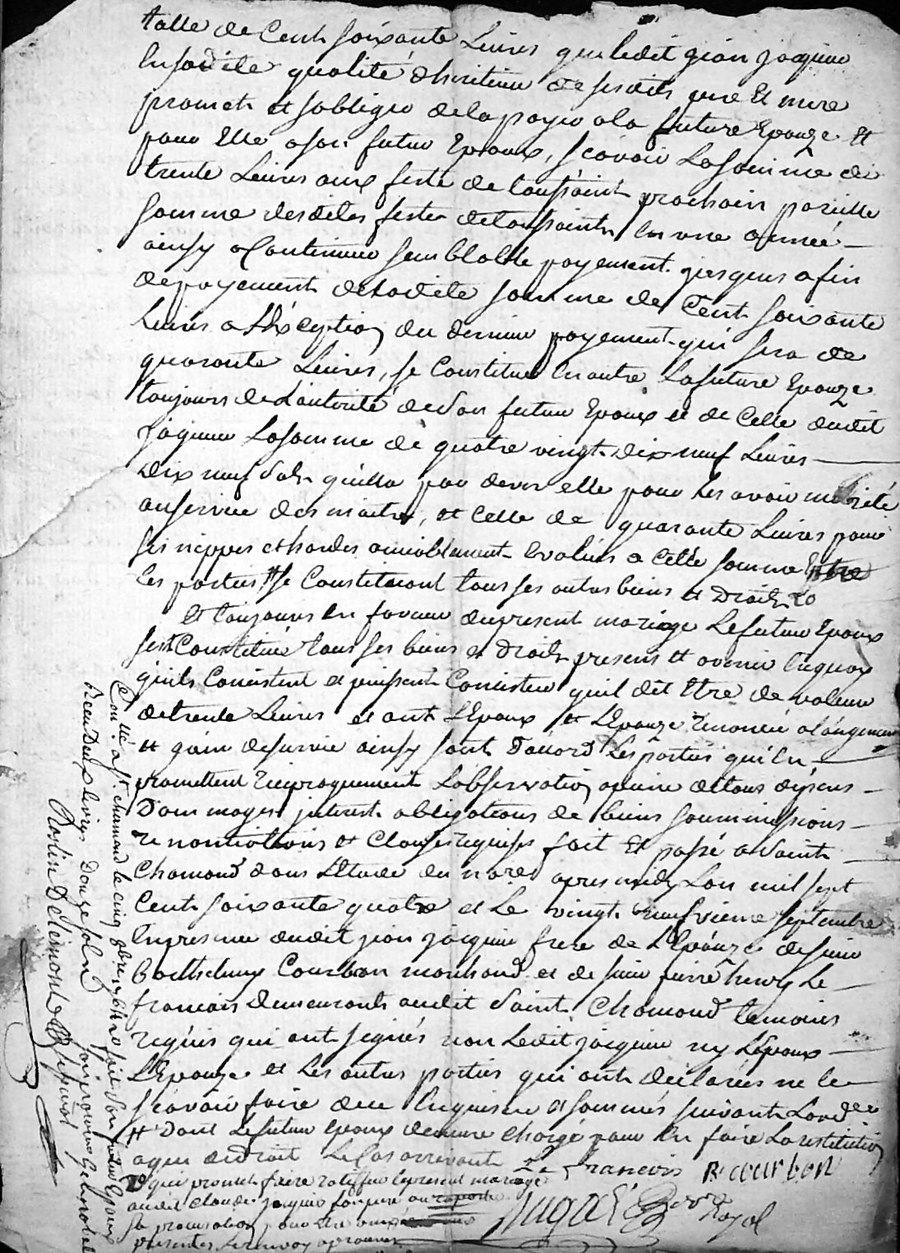 talle de Cent soixante Livres que ledit jean jacquier
en sadite qualité dheritier de sesdits pere et mere
promet et soblige de la payer a la future Epouze et
pour Elle a son futur Epoux, sçavoir La somme de
trente Livres aux feste de toussaint prochain pareille
somme desdites festes de toussaints En une année
ainsy a Continuer semblable payement jusques a fin
de payement de ladite somme de Cent soixante
Livres a L'Exception du dernier payement qui sera de
quarante Livres, se Constitue En outre La future Epouze
toujours de L'autorité de son futur Epoux et de Celle dudit
jaquier La somme de quatre vingt dix neuf Livres
dix neuf sols quelle a par devers elle pour les avoir
au service des maitres, et Celle de quarante Livres pour
ses nippes et hardes amiablement Evalués a Cette somme Entre
Les parties se Constituant tous ses autres biens et Droits
Et toujours En faveur du present mariage Le futur Epoux
sest Constitué tous ses biens et Droits presents et avenir En quoy
quils Consistent et puissent Consister quil dit Etre de valeur
de trente Livres et ont L'Epoux et L'Epouze renoncé a
et gain de survie ainsy sont Daccord Les parties qui En
promettent reciproquement L'observation a peine de tous depens
Dommages interets obligations de biens soummissions
renontiations et Clauses requises fait et passé a Saint
Chamond dans L'Etude du no.re apres midy L'an mil sept
Cent soixante quatre et Le vingt neufvieme septembre
En presence dudit jean jacquier frere de L'Epouze de sieur
Barthelemy Courbon marchand et de sieur pierre henry Le
francois demeurants audit Saint Chamond temoins
requis qui ont signés non Ledit jacquier ny L'Epoux
L'Epouze et Les autres parties qui ont declarés ne le
sçavoir faire de ce Enquis et sommés suivant L'ord.ce
Et Dont Le futur Epoux demeure chargé pour En faire La restitution
a qui de droit Le Cas arrivant
qui promet faire ratiffier le present mariage
audit Claude jaquier
sa procuration pour Etre
presentes Le renvoy approuvé
Le Francois B courbon
Dugas
Royal
Conllé a St chamond le cinq 8bre 1764
Recu Deux Livres Douze sols